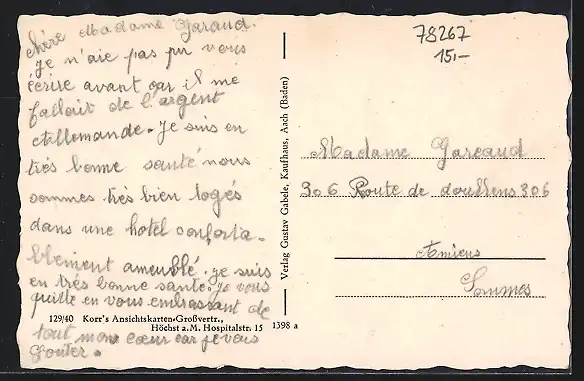 chère Madame Garaud.
Je n'aie pas pu vous
écrire avant car il me
fallait de l'argent
Allemande. Je suis en
très bonne santé nous
sommes très bien logés
dans une hotel conforta-
blement ameublé. je suis
en très bonne santé. Je vous
quitte en vous embrassant de
tout mon cœur car je vais
Gouter.
129/40 Korr's Ansichtskarten-Großvertr.,
Höchst a.M. Hospitalstr. 15
1398 a
Verlag Gustav Gabele, Kaufhaus, Aach (Baden)
78267
15,-
Madame Gareaud
306 Route de doullens 306
Amiens
Sommes